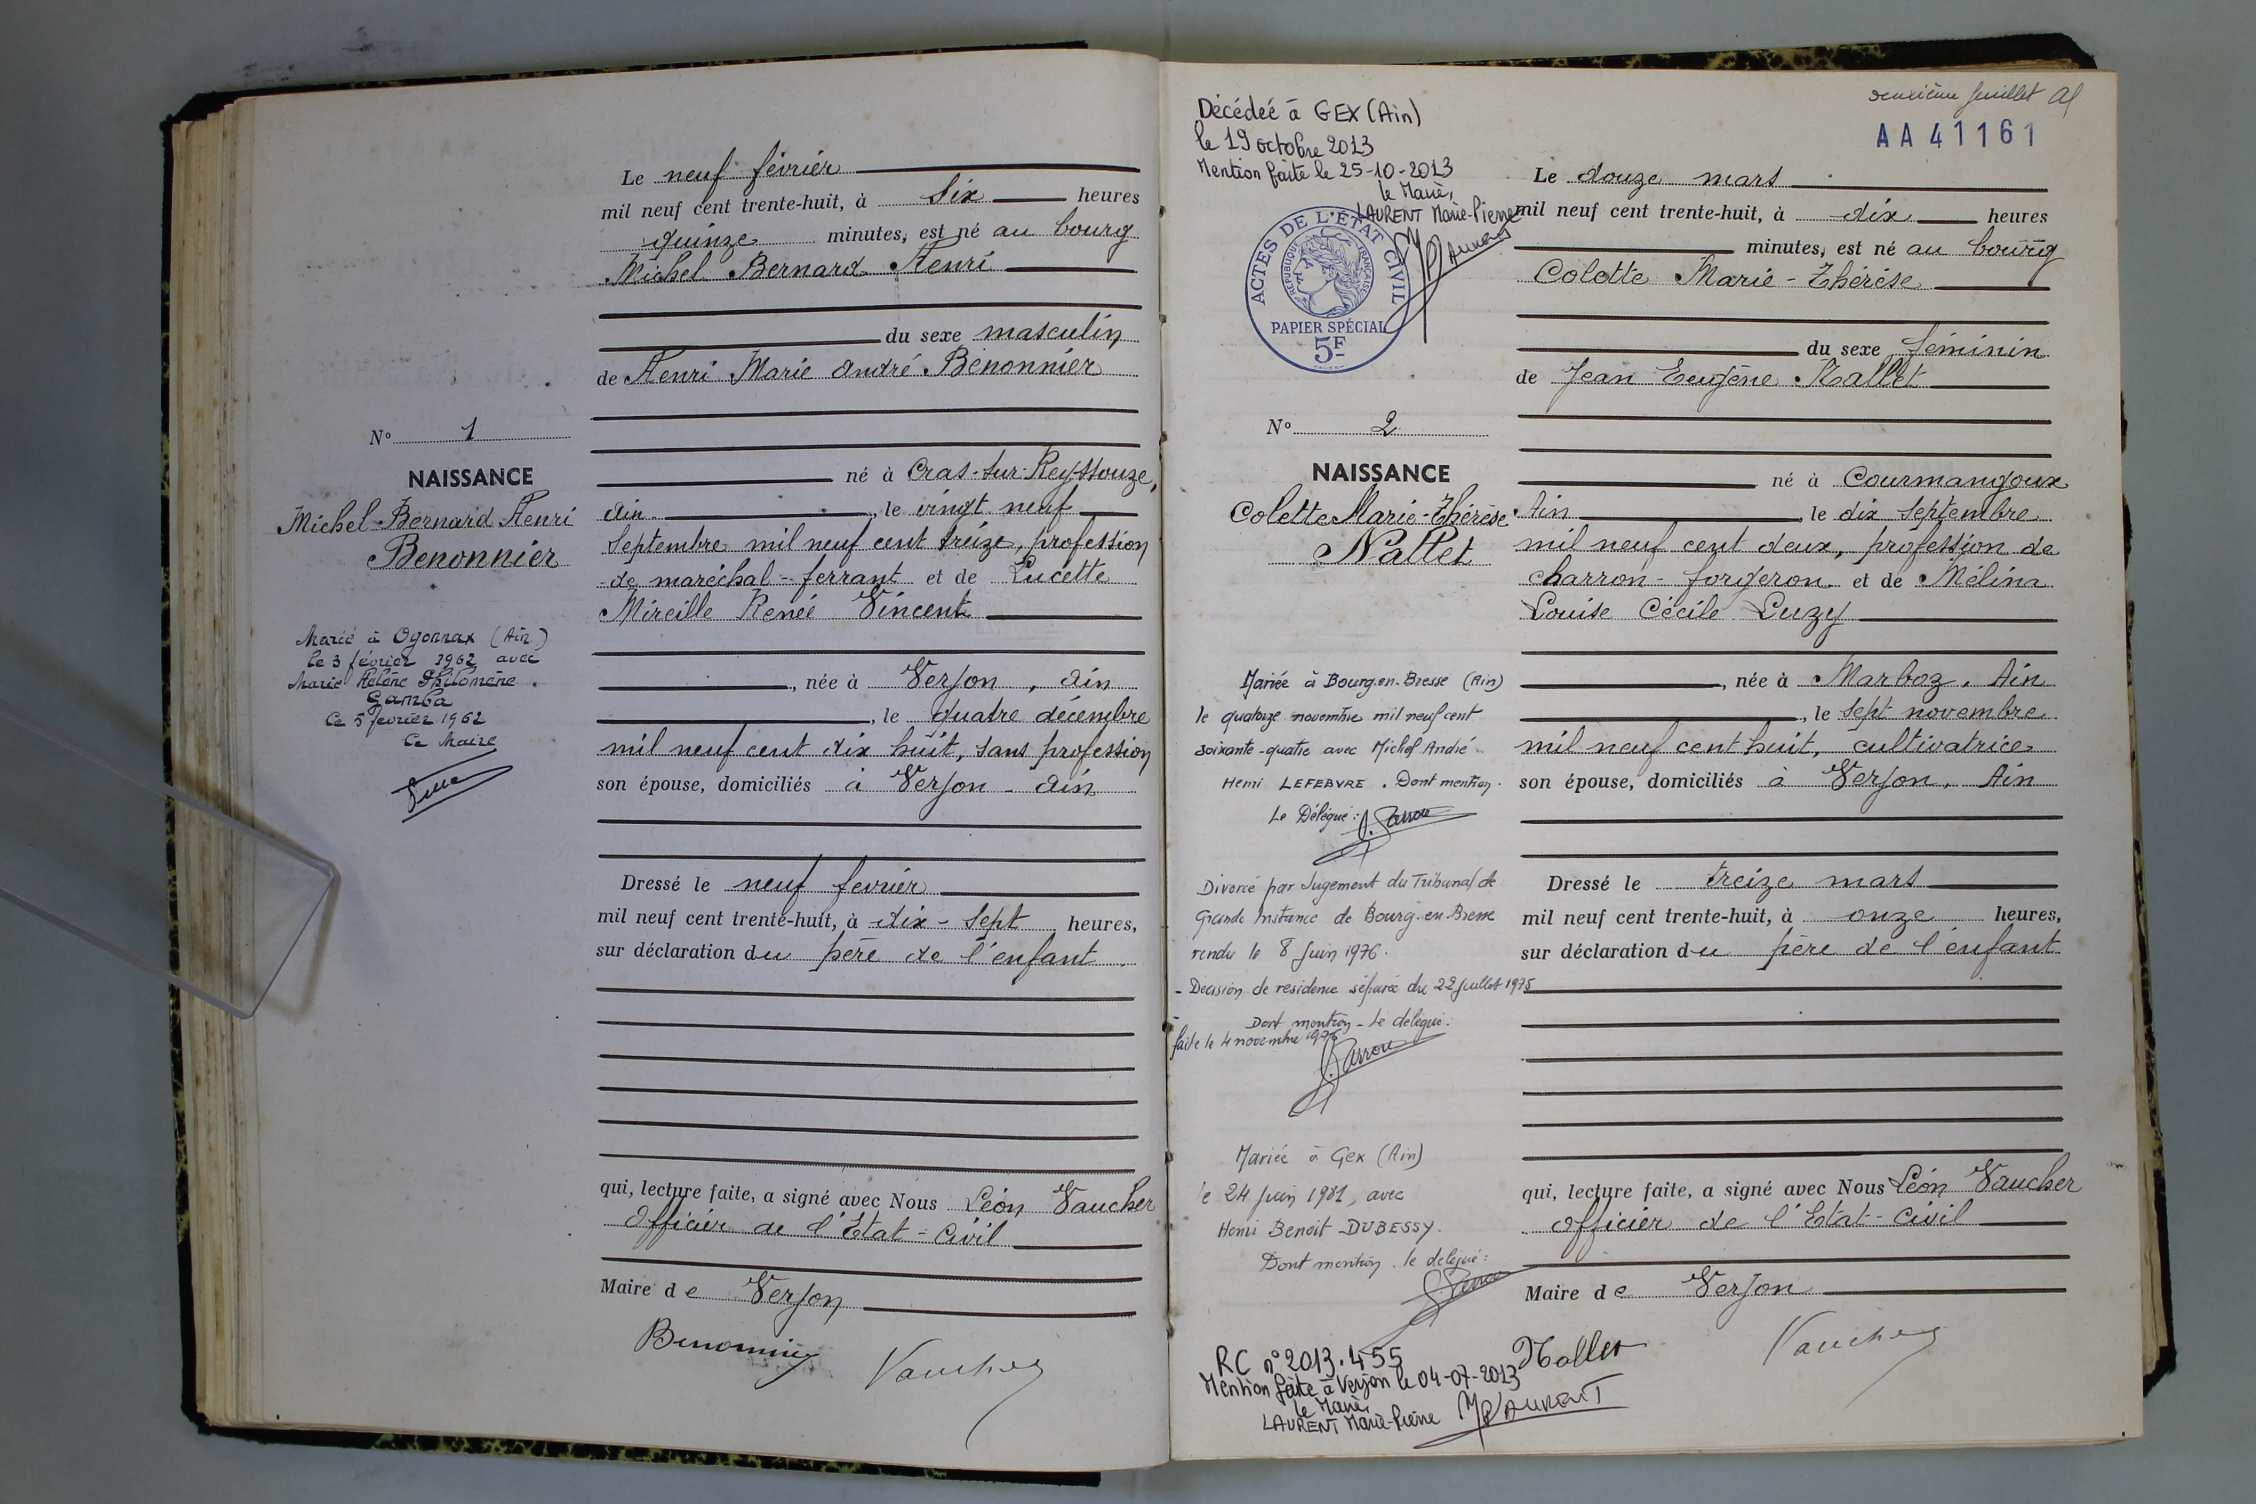 Le neuf février
mil neuf cent trente-huit, à six heures
quinze minutes, est né au bourg
Michel Bernard Henri
du sexe masculin
de Henri Marie André Benonnier
N° 1
NAISSANCE
Michel Bernard Henri
Benonnier
né à Cras-sur-Reyssouze,
Ain, le vingt neuf
Septembre mil neuf cent treize, profession
de maréchal-ferrant et de Lucette
Mireille Renée Vincent
Marié à Oyonnax (Ain)
le 3 février 1962 avec
Marie Hélène Philomène
Gamba
le 5 février 1962
Le Maire
, née à Verjon, Ain
, le quatre décembre
mil neuf cent dix huit, sans profession
son épouse, domiciliés à Verjon - Ain
Dressé le neuf fevrier
mil neuf cent trente-huit, à dix-sept heures,
sur déclaration du père de l'enfant
qui, lecture faite, a signé avec Nous Léon Vaucher
Officier de l'Etat-Civil
Maire de Verjon
Benonnier Vaucher
deuxième feuillet
AA 41161
Décédée à GEX (Ain)
le 19 octobre 2013
Mention faite le 25-10-2013
le Maire,
LAURENT Marie-Pierre
ACTES DE L'ÉTAT CIVIL
RÉPUBLIQUE FRANÇAISE
PAPIER SPÉCIAL
5F
Le douze mars
mil neuf cent trente-huit, à dix heures
minutes, est né au bourg
Colette Marie-Thérèse
du sexe féminin
de Jean Eugène Nallet
N° 2
NAISSANCE
Colette Marie-Thérèse
Nallet
né à Courmangoux
Ain, le dix septembre
mil neuf cent deux, profession de
charron-forgeron et de Mélina
Louise Cécile Luzy
, née à Marboz, Ain
, le sept novembre
mil neuf cent huit, cultivatrice
son épouse, domiciliés à Verjon, Ain
Mariée à Bourg-en-Bresse (Ain)
le quatorze novembre mil neuf cent
soixante-quatre avec Michel André
Henri LEFEBVRE. Dont mention.
Le Délégué:
Divorcé par Jugement du Tribunal de
Grande Instance de Bourg-en-Bresse
rendu le 8 Juin 1976.
- Décision de résidence séparée du 22 juillet 1975
Dont mention - Le délégué:
faite le 4 novembre 1976
Mariée à Gex (Ain)
le 24 Juin 1981, avec
Henri Benoit DUBESSY.
Dont mention. le délégué:
RC n° 2013.455
Mention faite à Verjon le 04-07-2013
le Maire,
LAURENT Marie-Pierre
MPLAURENT
Dressé le treize mars
mil neuf cent trente-huit, à onze heures,
sur déclaration du père de l'enfant
qui, lecture faite, a signé avec Nous Léon Vaucher
Officier de l'Etat-Civil
Maire de Verjon
Nallet Vaucher